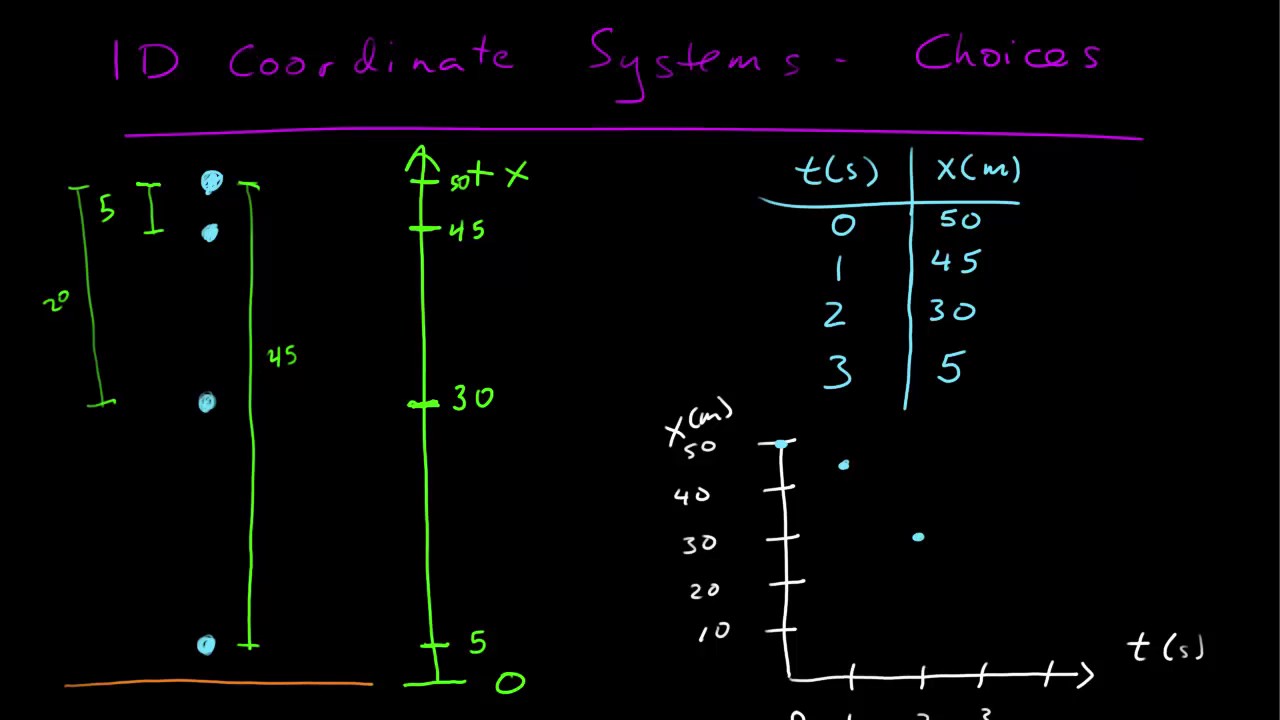 1D Coordinate Systems - Choices
5
20
45
50 + x
45
30
5
0
t(s) x(m)
0 50
1 45
2 30
3 5
x(m)
50
40
30
20
10
t(s)